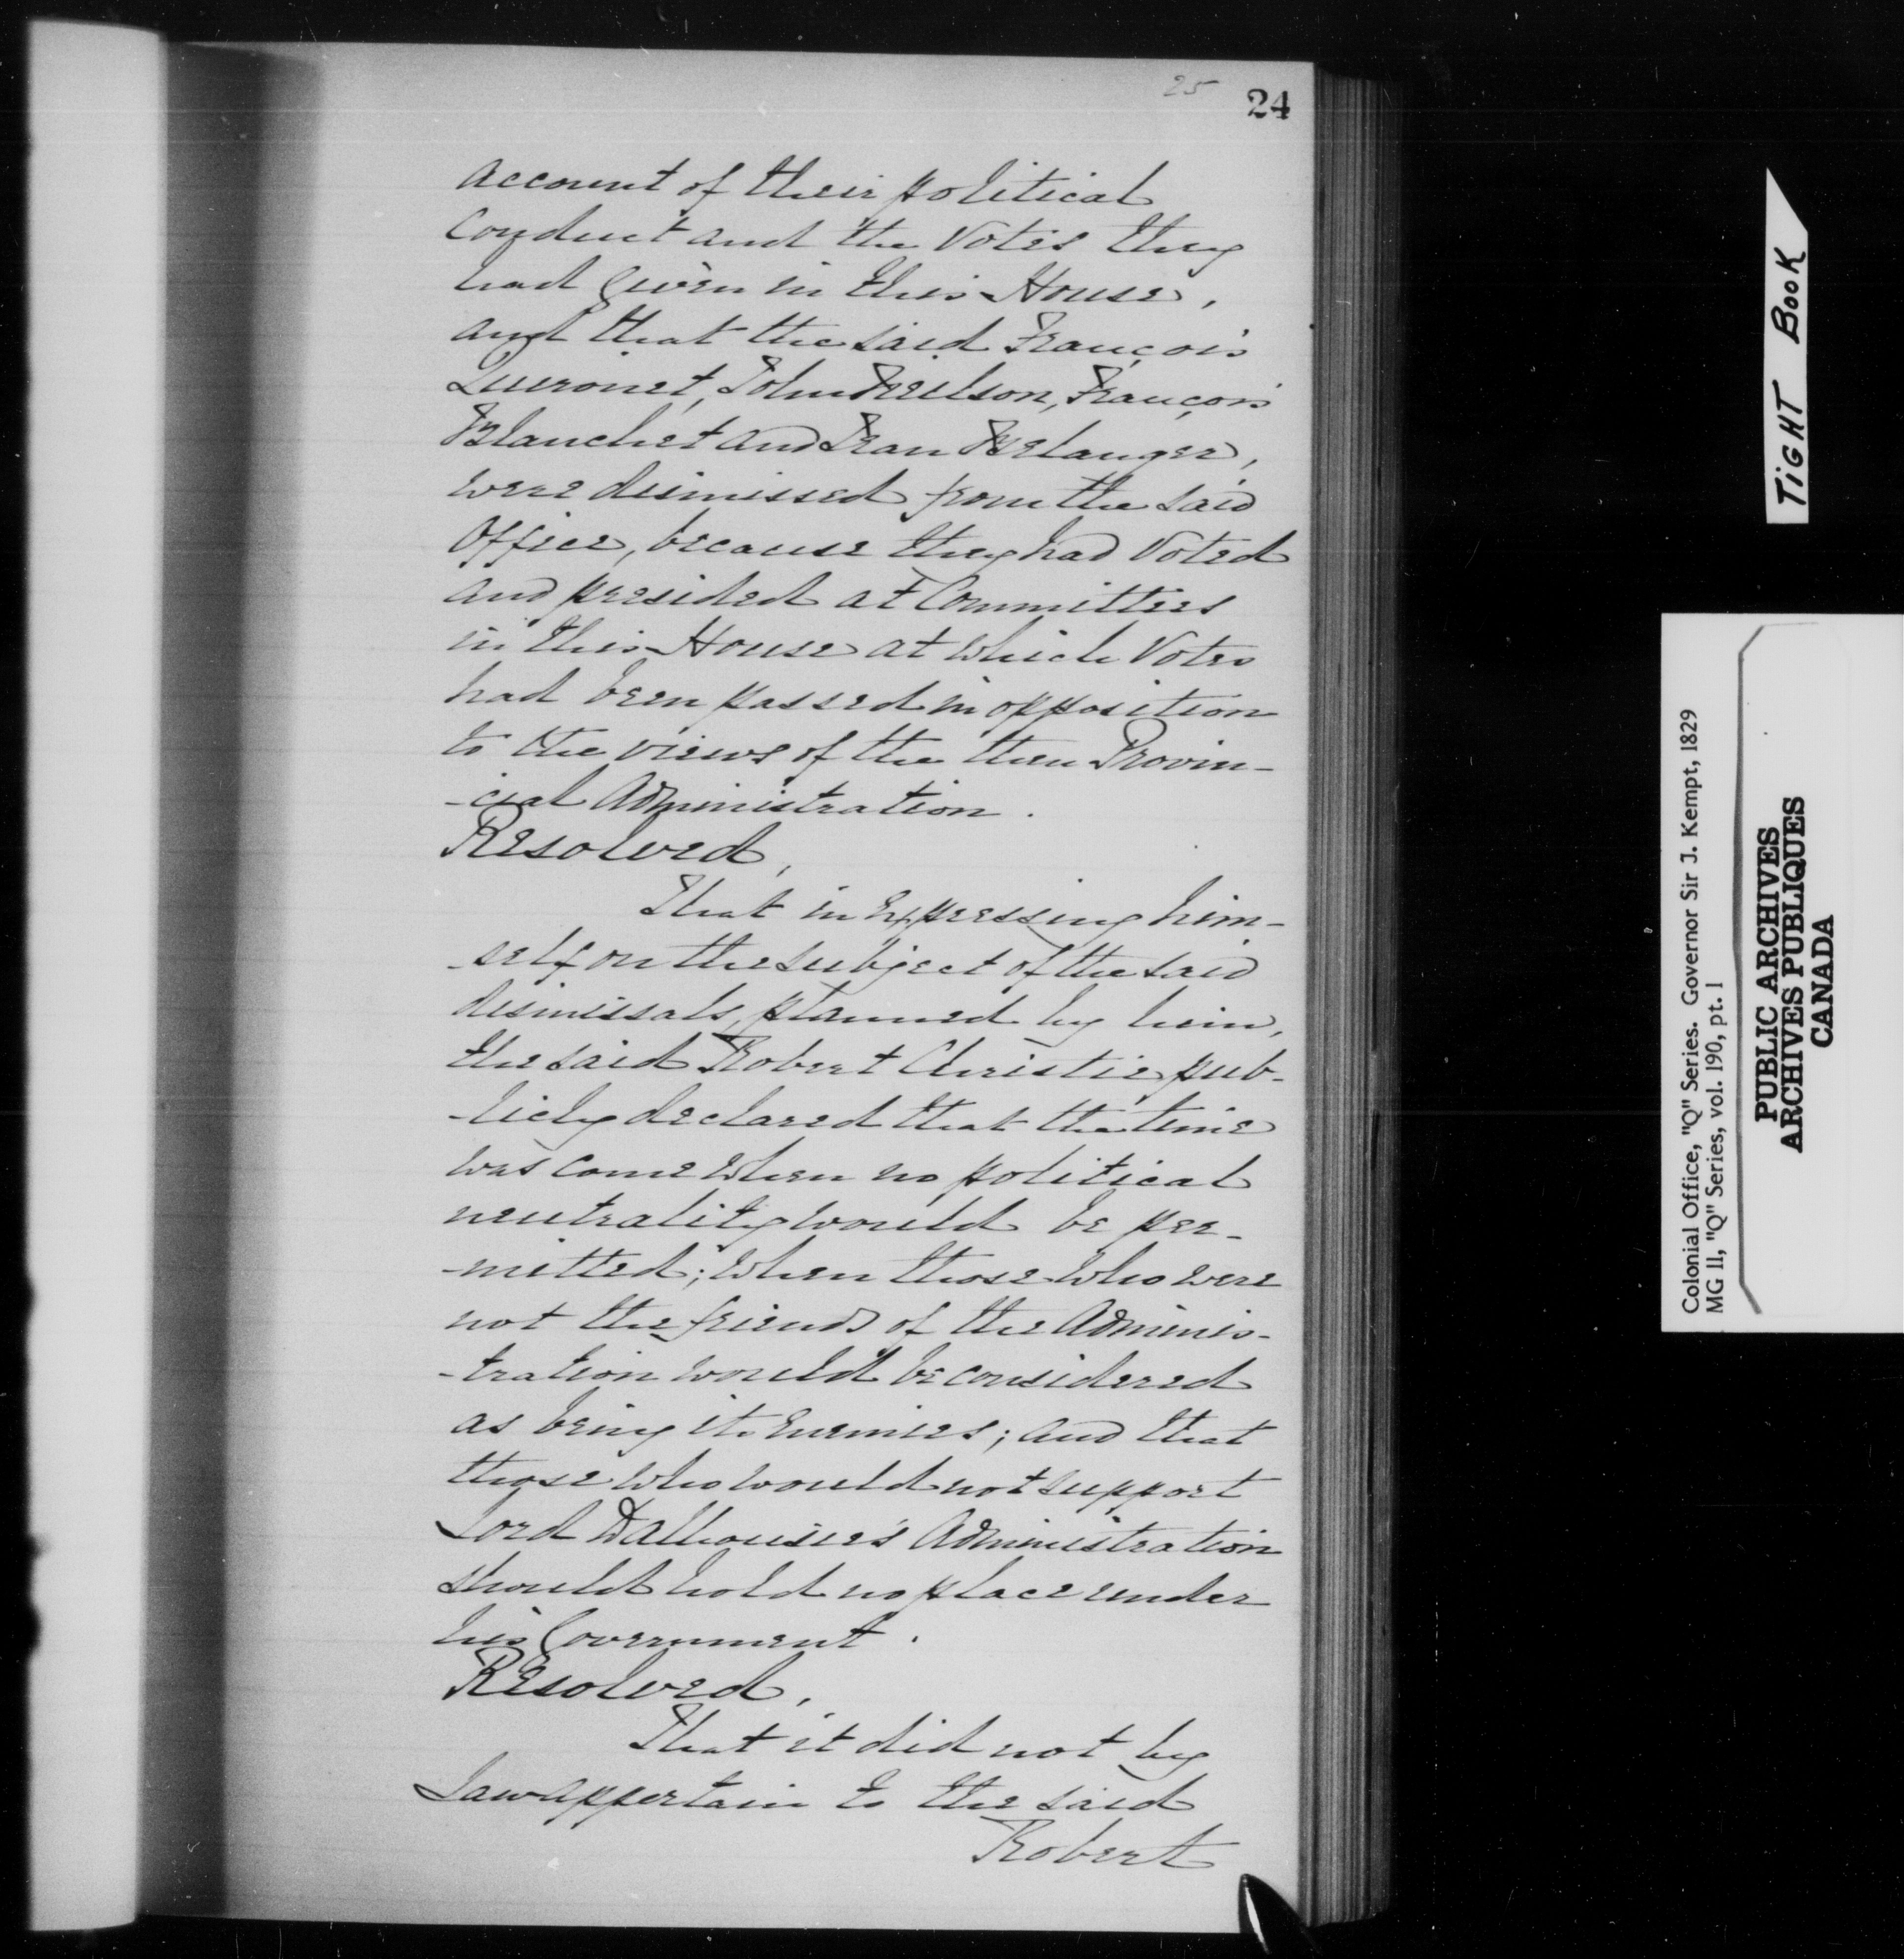 25
24
account of their political
Conduct and the Votes they
had Given in this House,
and that the said François
Queronet, John Neilson, François
Blanchet and Jean Belanger,
were dismissed from the said
Office, because they had Voted
and presided at Committees
in this House at which Votes
had been passed in opposition
to the views of the then Provin-
-cial Administration.
Resolved,
That in Expressing him-
-self on the subject of the said
dismissals, planned by him,
the said Robert Christie pub-
-licly declared that the time
was come when no political
neutrality would be per-
-mitted; when those who were
not the friends of the Adminis-
-tration would be considered
as being its Enemies; and that
those who would not support
Lord Dalhousie's Administration
should hold no place under
his Government.
Resolved,
That it did not by
Law appertain to the said
Robert
TIGHT BOOK
Colonial Office, "Q" Series. Governor Sir J. Kempt, 1829
MG 11, "Q" Series, vol. 190, pt. 1
PUBLIC ARCHIVES
ARCHIVES PUBLIQUES
CANADA